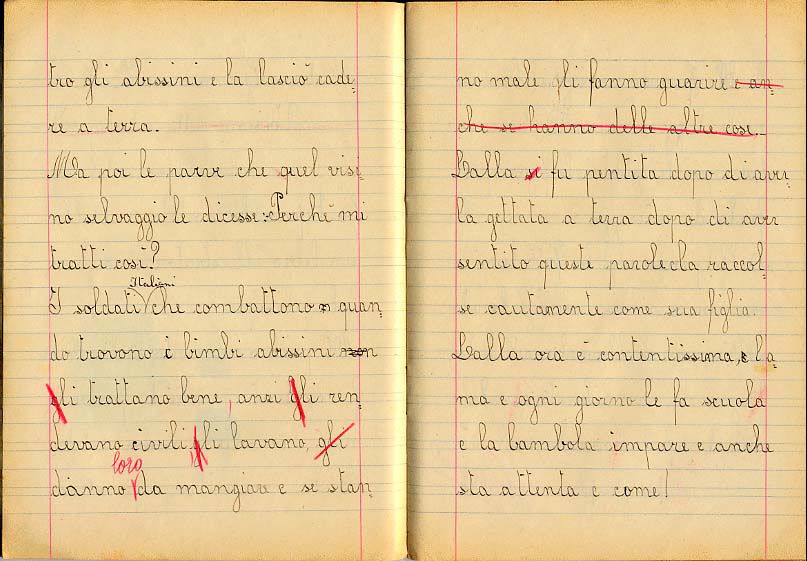 tro gli abissini e la lasciò cade-
re a terra.
Ma poi le parve che quel visi-
no selvaggio le dicesse: Perchè mi
tratti così?
Italiani
I soldati che combattono quan-
do trovono i bimbi abissini non
gli trattano bene, anzi gli ren-
devano civili gli lavano, gli
loro
dànno da mangiare e se stan-
no male gli fanno guarire e an-
che se hanno delle altre cose.
Lalla si fu pentita dopo di aver
la gettata a terra dopo di aver
sentito queste parole la raccol-
se cautamente come sua figlia.
Lalla ora è contentissima, e l'a-
ma e ogni giorno le fa scuola
e la bambola impare e anche
sta attenta e come!